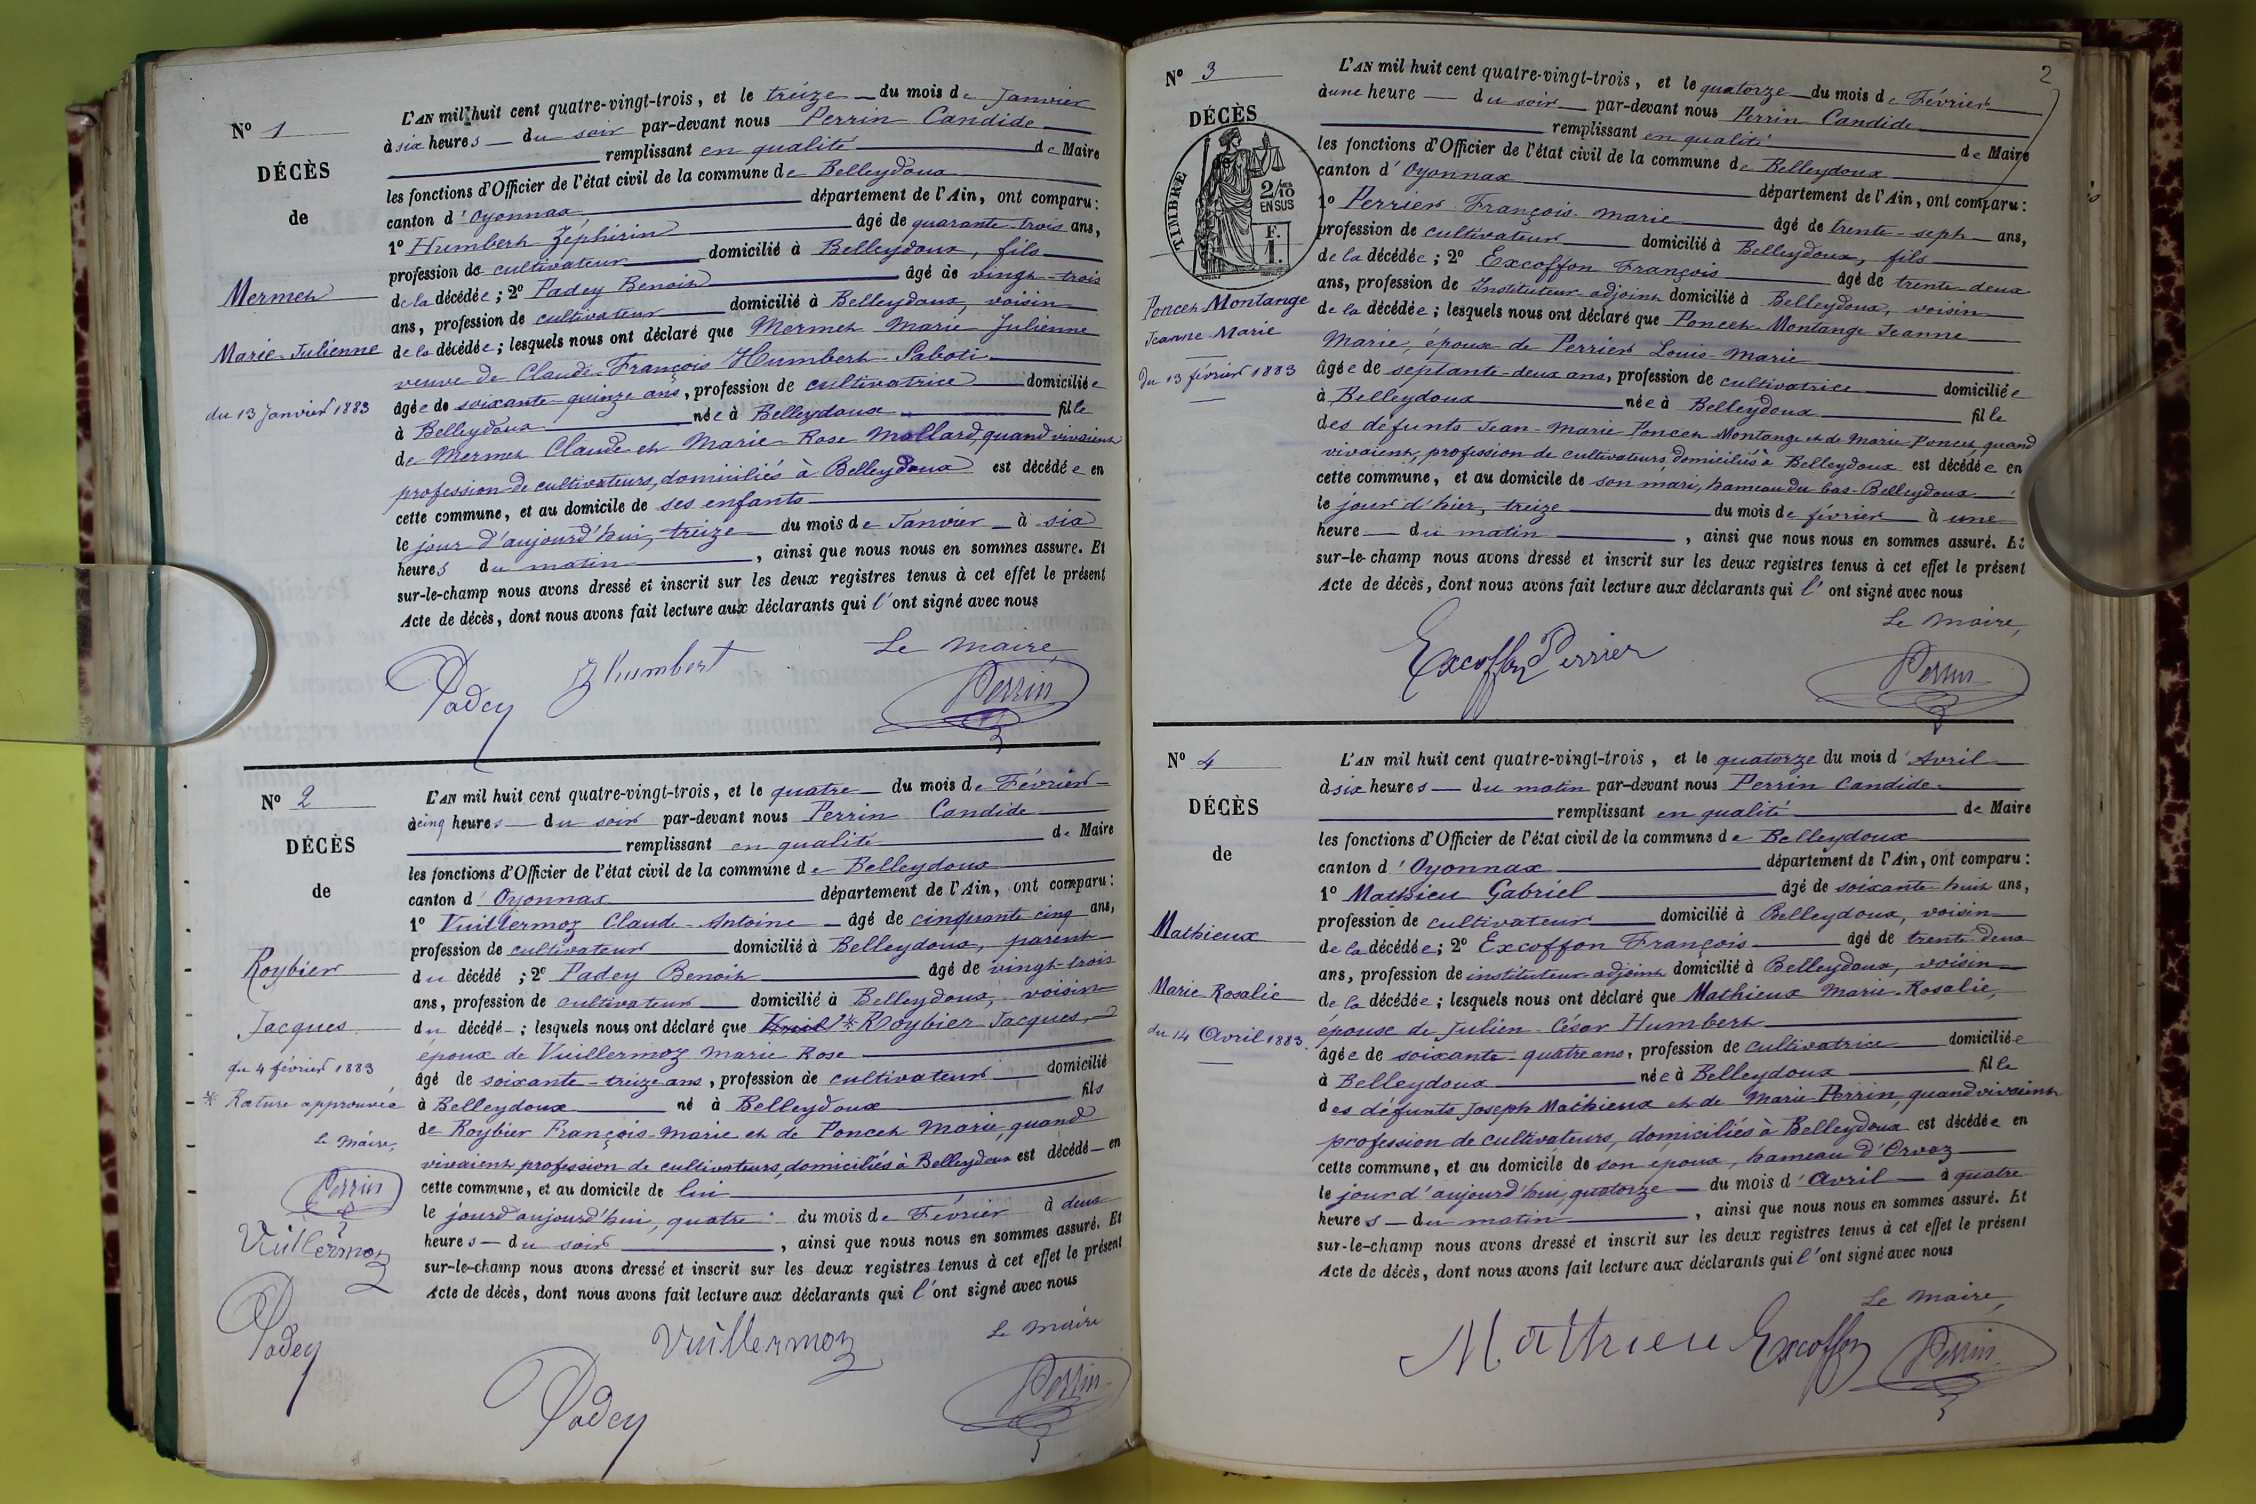 Nº 1
DÉCÈS
de
Mermet
Marie-Julienne
du 13 Janvier 1883
L'AN mil huit cent quatre-vingt-trois, et le treize du mois de Janvier
à six heures du soir par-devant nous Perrin Candide
remplissant en qualité de Maire
les fonctions d'Officier de l'état civil de la commune de Belleydoux
canton d'Oyonnax département de l'Ain, ont comparu:
1º Humbert Zéphirin âgé de quarante-trois ans,
profession de cultivateur domicilié à Belleydoux, fils
de la décédée; 2º Padey Benoit âgé de vingt-trois
ans, profession de cultivateur domicilié à Belleydoux, voisin
de la décédée; lesquels nous ont déclaré que Mermet Marie-Julienne
veuve de Claude-François Humbert-Saboti
âgée de soixante-quinze ans, profession de cultivatrice domiciliée
à Belleydoux née à Belleydoux fille
de Mermet Claude et Marie-Rose Mollard, quand vivaient
profession de cultivateurs, domiciliés à Belleydoux est décédée en
cette commune, et au domicile de ses enfants
le jour d'aujourd'hui, treize du mois de Janvier à six
heures du matin, ainsi que nous nous en sommes assuré. Et
sur-le-champ nous avons dressé et inscrit sur les deux registres tenus à cet effet le présent
Acte de décès, dont nous avons fait lecture aux déclarants qui l'ont signé avec nous
Le Maire,
Padey Z humbert Perrin
Nº 2
DÉCÈS
de
Roybier
Jacques
du 4 février 1883
* Rature approuvée
Le Maire,
Perrin
Vuillermoz
Padey
L'AN mil huit cent quatre-vingt-trois, et le quatre du mois de Février
à cinq heures du soir par-devant nous Perrin Candide
remplissant en qualité de Maire
les fonctions d'Officier de l'état civil de la commune de Belleydoux
canton d'Oyonnax département de l'Ain, ont comparu:
1º Vuillermoz Claude-Antoine âgé de cinquante cinq ans,
profession de cultivateur domicilié à Belleydoux, parent
du décédé; 2º Padey Benoit âgé de vingt-trois
ans, profession de cultivateur domicilié à Belleydoux, voisin
du décédé; lesquels nous ont déclaré que * Roybier Jacques,
époux de Vuillermoz Marie-Rose
âgé de soixante-treize ans, profession de cultivateur domicilié
à Belleydoux né à Belleydoux fils
de Roybier François-Marie et de Poncet Marie, quand
vivaient profession de cultivateurs, domiciliés à Belleydoux est décédé en
cette commune, et au domicile de lui
le jour d'aujourd'hui, quatre du mois de Février à deux
heures du soir, ainsi que nous nous en sommes assuré. Et
sur-le-champ nous avons dressé et inscrit sur les deux registres tenus à cet effet le présent
Acte de décès, dont nous avons fait lecture aux déclarants qui l'ont signé avec nous
Le Maire
Vuillermoz
Padey Perrin
2
Nº 3
DÉCÈS
TIMBRE
2/10
EN SUS
F.
1.
Poncet Montange
Jeanne Marie
du 13 février 1883
L'AN mil huit cent quatre-vingt-trois, et le quatorze du mois de Février
à une heure du soir par-devant nous Perrin Candide
remplissant en qualité de Maire
les fonctions d'Officier de l'état civil de la commune de Belleydoux
canton d'Oyonnax département de l'Ain, ont comparu:
1º Perrier François-Marie âgé de trente-sept ans,
profession de cultivateur domicilié à Belleydoux, fils
de la décédée; 2º Excoffon François âgé de trente-deux
ans, profession de Instituteur-adjoint domicilié à Belleydoux, voisin
de la décédée; lesquels nous ont déclaré que Poncet-Montange Jeanne
Marie, époux de Perrier Louis-Marie
âgée de septante-deux ans, profession de cultivatrice domiciliée
à Belleydoux née à Belleydoux fille
des défunts Jean-Marie Poncet-Montange et de Marie Poncet, quand
vivaient, profession de cultivateurs, domiciliés à Belleydoux est décédée en
cette commune, et au domicile de son mari, hameau du bas-Belleydoux
le jour d'hier, treize du mois de février à une
heure du matin, ainsi que nous nous en sommes assuré. Et
sur-le-champ nous avons dressé et inscrit sur les deux registres tenus à cet effet le présent
Acte de décès, dont nous avons fait lecture aux déclarants qui l'ont signé avec nous
Le Maire,
Excoffon Perrier Perrin
Nº 4
DÉCÈS
de
Mathieux
Marie Rosalie
du 14 Avril 1883
L'AN mil huit cent quatre-vingt-trois, et le quatorze du mois d'Avril
à six heures du matin par-devant nous Perrin Candide
remplissant en qualité de Maire
les fonctions d'Officier de l'état civil de la commune de Belleydoux
canton d'Oyonnax département de l'Ain, ont comparu:
1º Mathieu Gabriel âgé de soixante-huit ans,
profession de cultivateur domicilié à Belleydoux, voisin
de la décédée; 2º Excoffon François âgé de trente-deux
ans, profession de instituteur-adjoint domicilié à Belleydoux, voisin
de la décédée; lesquels nous ont déclaré que Mathieux Marie-Rosalie,
épouse de Julien-César Humbert
âgée de soixante-quatre ans, profession de cultivatrice domiciliée
à Belleydoux née à Belleydoux fille
des défunts Joseph Mathieux et de Marie Perrin, quand vivaient
profession de cultivateurs, domiciliés à Belleydoux est décédée en
cette commune, et au domicile de son époux, hameau d'Orvaz
le jour d'aujourd'hui, quatorze du mois d'Avril à quatre
heures du matin, ainsi que nous nous en sommes assuré. Et
sur-le-champ nous avons dressé et inscrit sur les deux registres tenus à cet effet le présent
Acte de décès, dont nous avons fait lecture aux déclarants qui l'ont signé avec nous
Le Maire,
Mathieu Excoffon Perrin